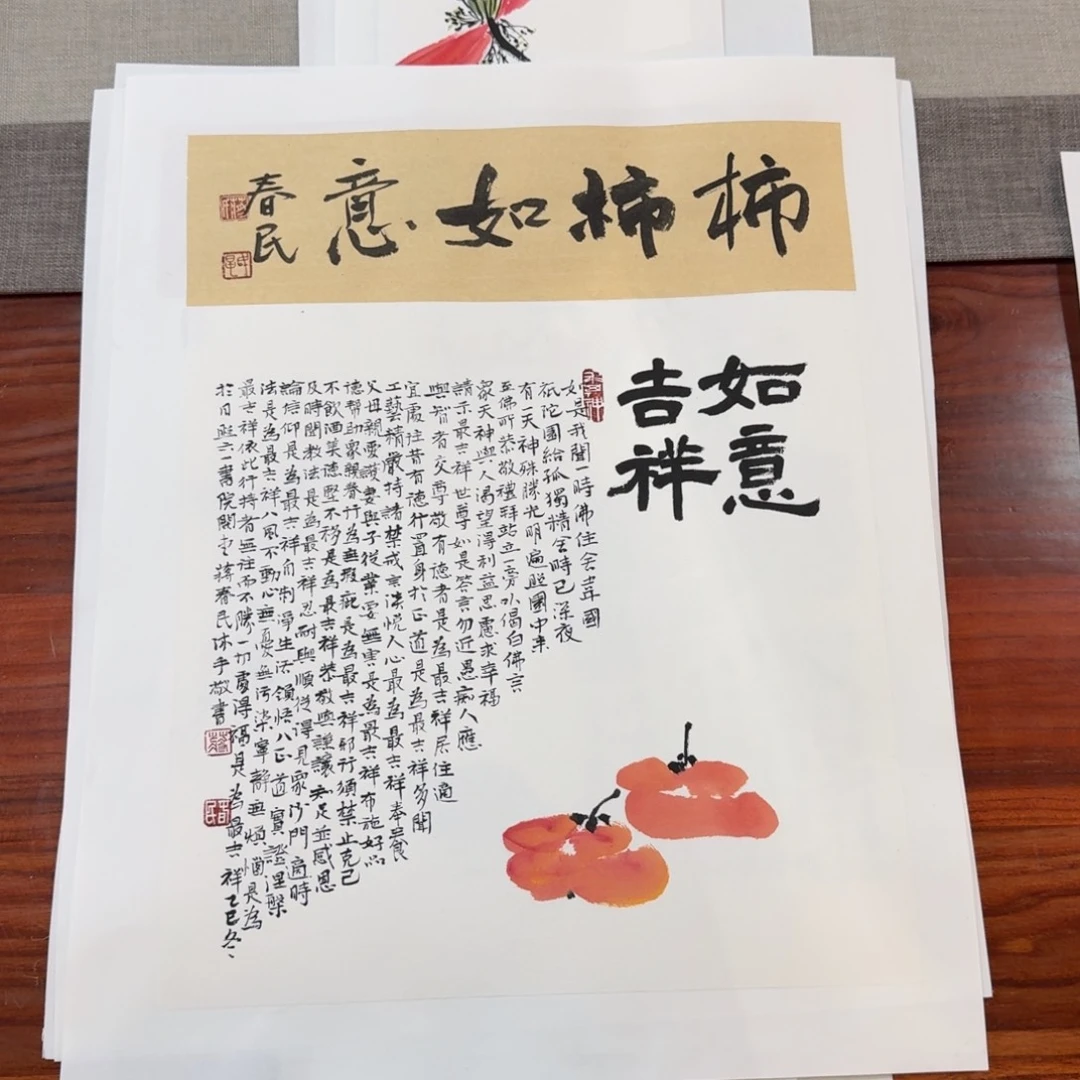 柿柿如意
春民
如意
吉祥
如是我聞一時佛住舍衛國
祇陀園給孤獨精舍時已深夜
有一天神殊勝光明遍照園中来
至佛所恭敬禮拜站立一旁以偈白佛言
眾天神與人渴望得利益思慮求幸福
請示最吉祥世尊如是答言勿近愚痴人應
與智者交尊敬有德者是為最吉祥居住適
宜處往昔有德行置身於正道是為最吉祥多聞
工藝精嚴持諸禁戒言談悅人心最為最吉祥奉養
父母親愛護妻與子從業要無害是為最吉祥布施好品
德幫助眾親眷行為無瑕疵是為最吉祥邪行須禁止克己
不飲酒美德堅不移是為最吉祥恭敬與謙讓知足並感恩
及時聞教法是為最吉祥忍耐與順從得見眾沙門適時
論信仰是為最吉祥自制淨生活領悟八正道實證涅槃
法是為最吉祥八風不動心無憂無污染寧靜無煩惱是為
最吉祥依此行持者無往而不勝一切處得福是為最吉祥乙巳冬
於日照六一書院閣堂蔣春民沐手敬書